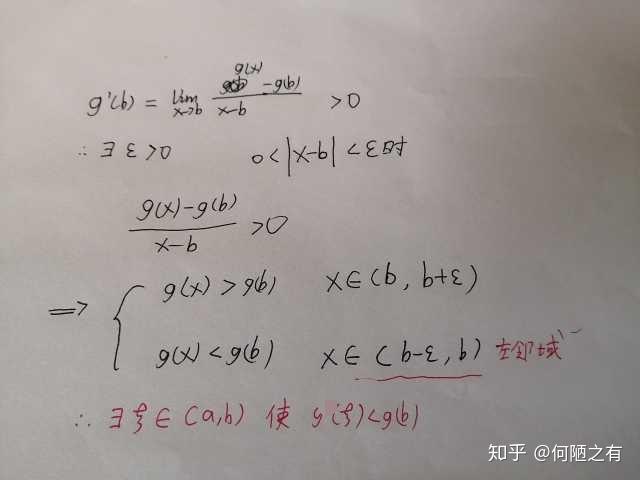 g'(b) = lim x→b (g(x) - g(b))/(x-b) >0
∴ ∃ ε>0 0<|x-b|<ε时
(g(x)-g(b))/(x-b) >0
⟹ { g(x) > g(b) x∈(b, b+ε)
g(x) < g(b) x∈(b-ε, b) 左邻域
∴ ∃ ξ ∈ (a,b) 使 g(ξ)<g(b)
知乎 @何陋之有